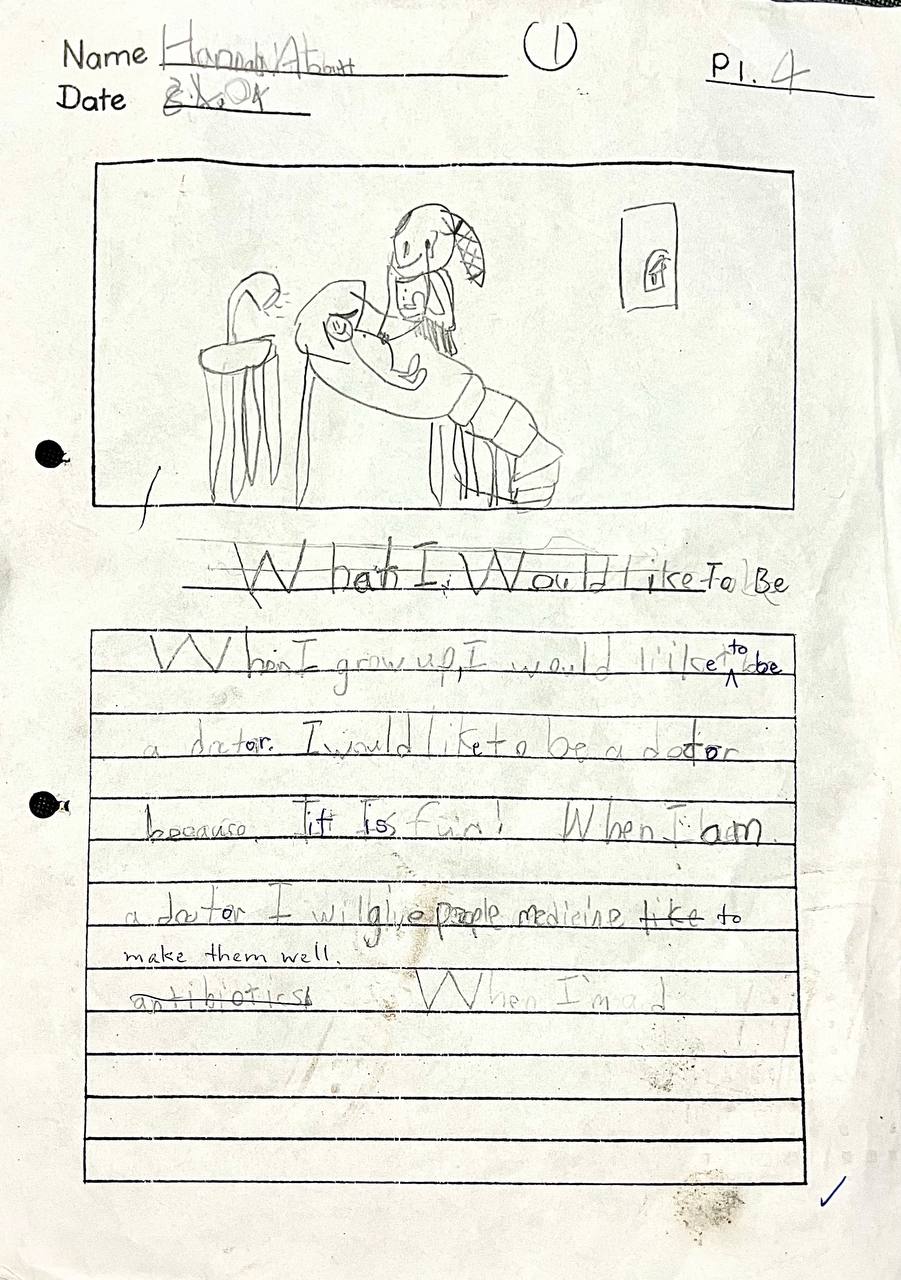 Name Hannah Abbott
1
P1. 4
Date
What I Would like To Be
When I grow up, I would like to be
a doctor. I would like to be a doctor
because it is fun! When I am
a doctor I will give people medicine like to
make them well.
antibiotics When I'm a d